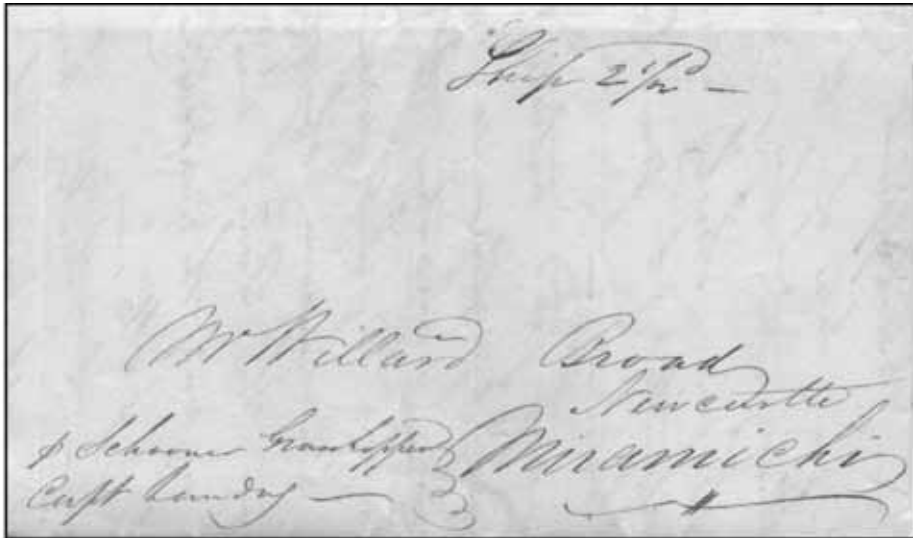 Ship 2½ —
Mr Willard Broad
Newcastle
Miramichi
p Schooner Grasshopper
Capt Landry —